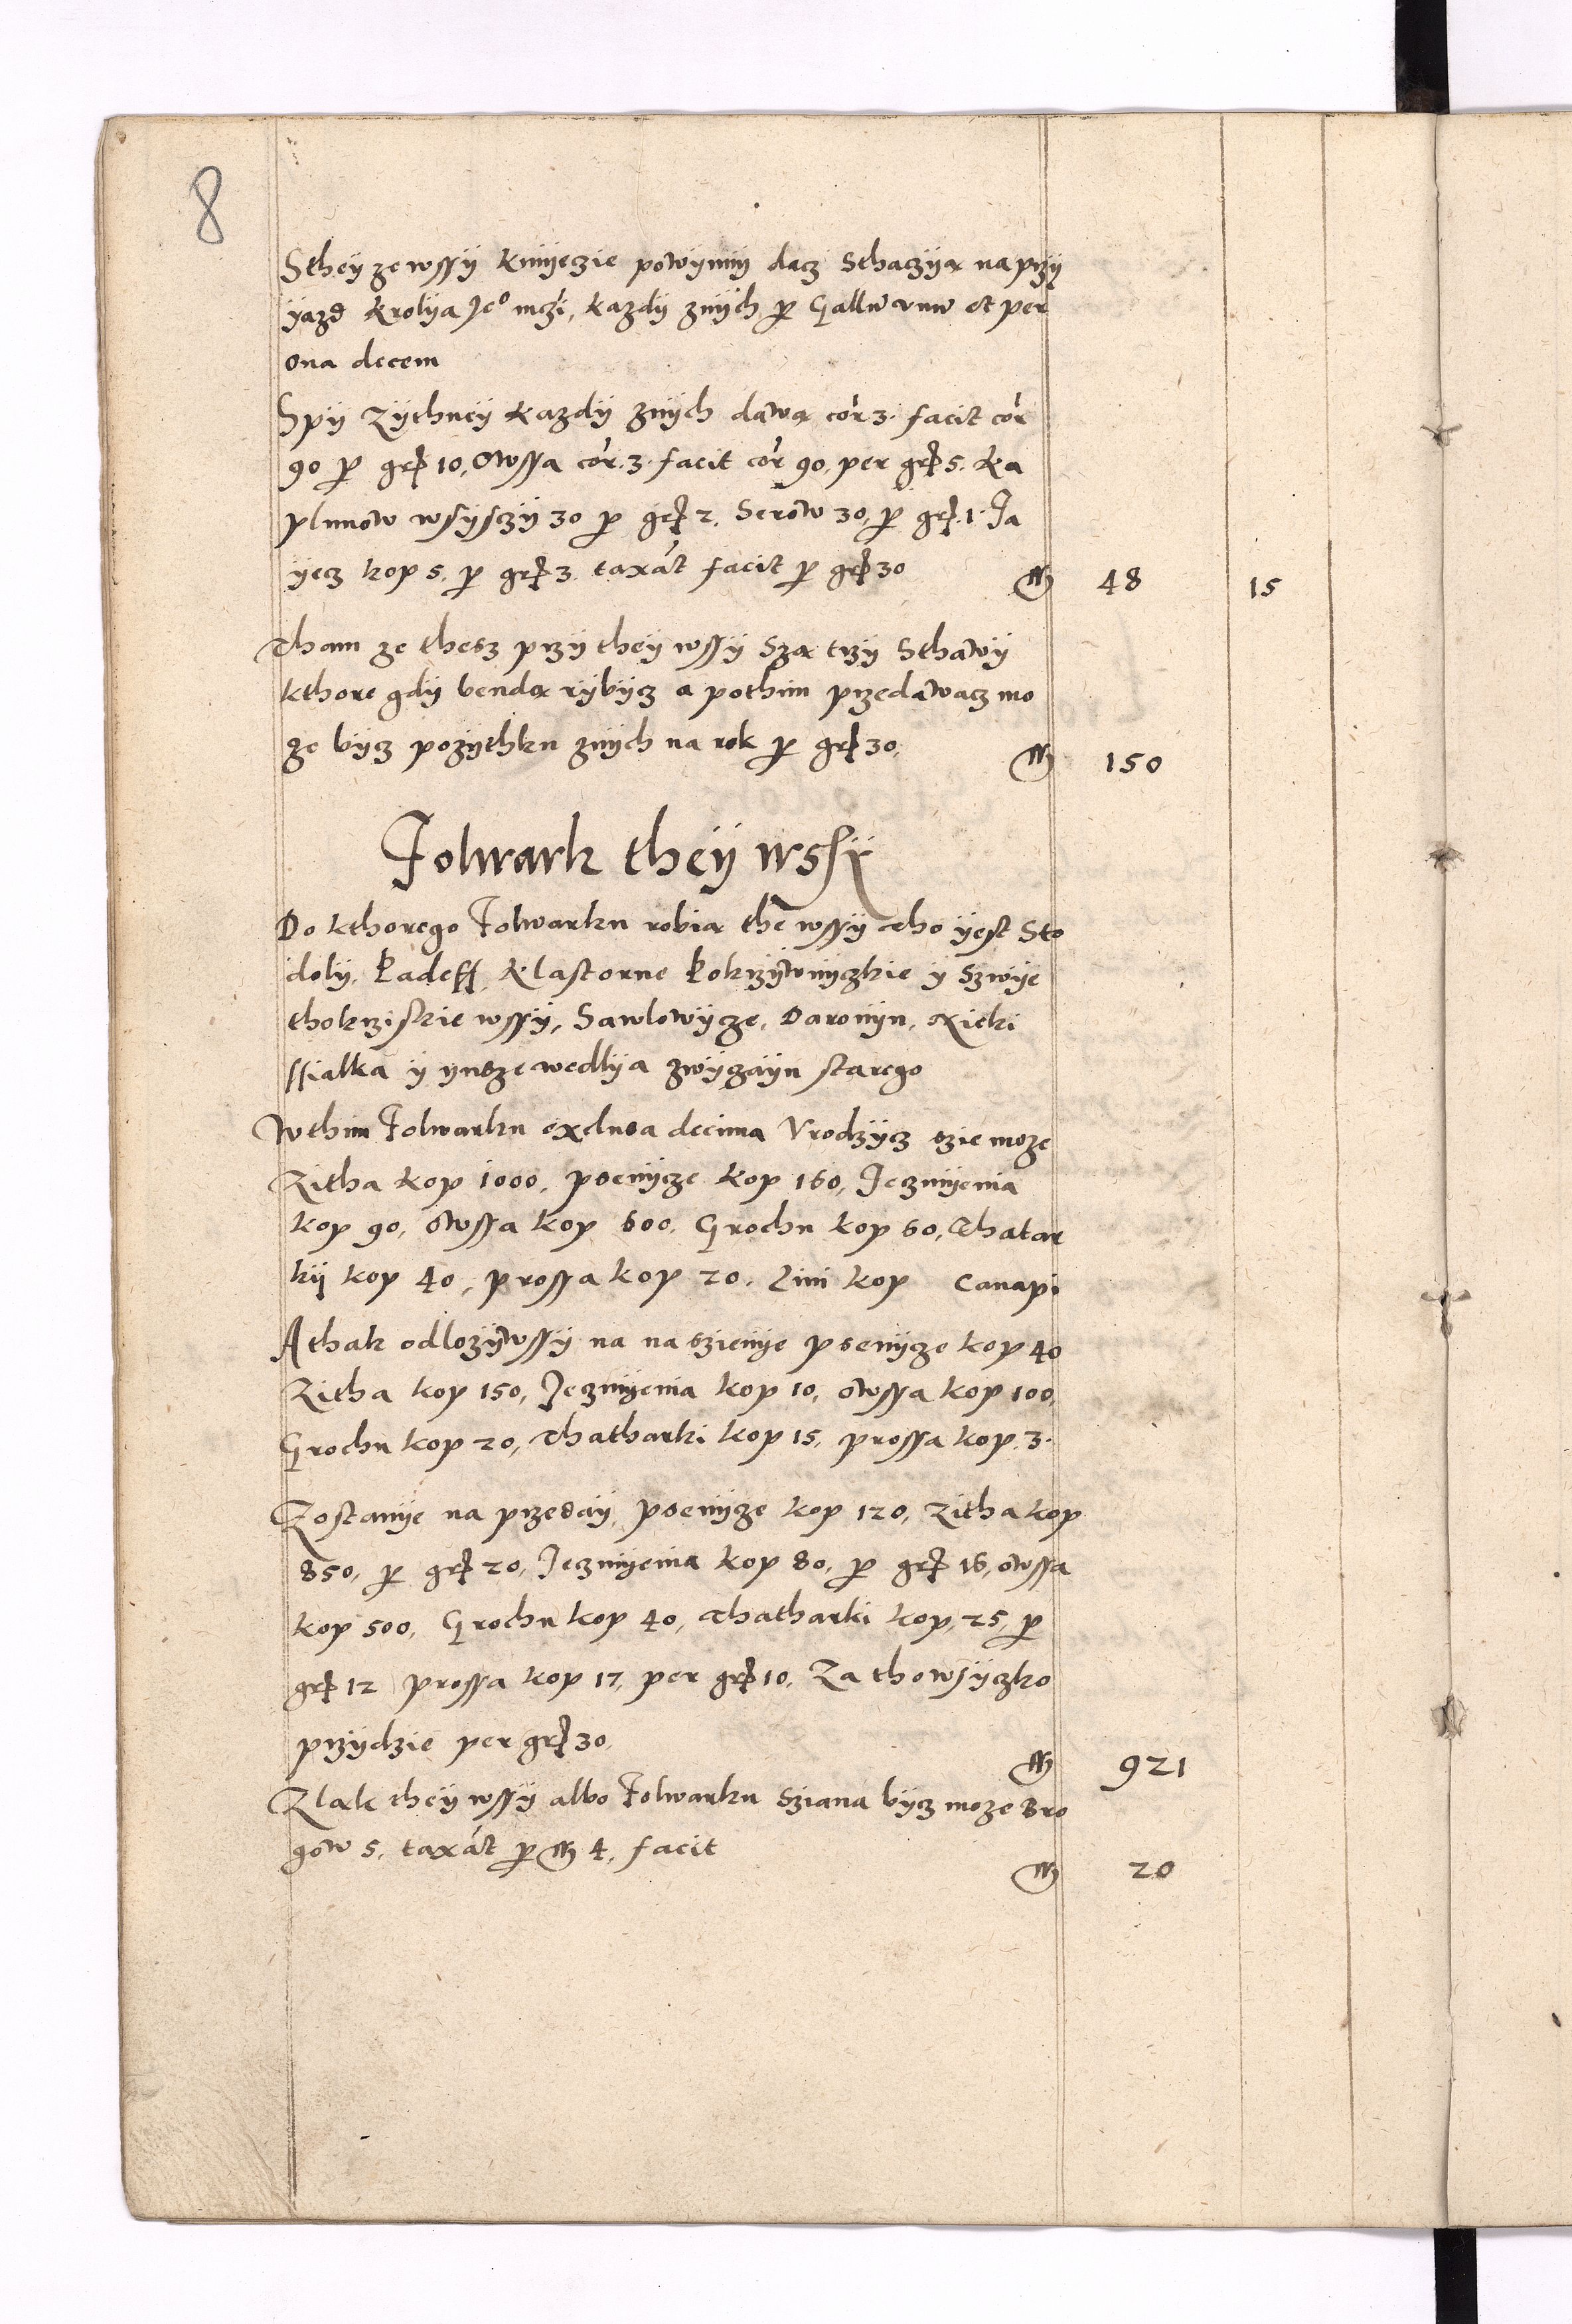 8
Sthey ze wssÿ kmÿeczie powÿnnÿ dacz Sthaczÿą na przÿ
ÿazd Krolÿa Je° mczi, kazdÿ znÿch per Gallum unum et per
ona decem
Spÿ Zÿthneÿ kazdÿ znÿch dawa cor 3. facit cor
90 per gr 10, Owssa cor. 3. facit cor 90, per gr 5. Ka
plunow wsÿsczÿ 30 per gr 2. Serow 30, per gr. 1. Ja
ÿecz kop 5. per gr 3. taxat facit per gr 30 m 48 15
Tham ze thesz przÿ theÿ wssÿ Szą trzÿ Sthawÿ
kthore gdÿ bendą rÿbÿcz a pothim przedawacz mo
ze bÿcz pozÿthku znÿch na rok per gr 30, m 150
Folwark theÿ wssÿ
Do kthorego Folwarku robią the wssÿ tho ÿest Sto
dolÿ, Ładess, Klastorne Łokrzÿwnÿczkie ÿ Szwÿe
thokrziskie wssÿ, Sawlowÿcze, Daronÿn,
ssialka ÿ ÿnsze wedlÿa zwÿczaÿu starego
Wthim Folwarku exclusa decima Vrodzÿcz szie moze
Zitha kop 1000, psenÿcze kop 160, Jeczmÿenia
kop 90, owssa kop 600, Grochu kop 60, Thatar
kÿ kop 40, prossa kop 20, Lini kop Canapi
A thak odlozÿwssÿ na na szienÿe psenÿcze kop 40
Zitha kop 150, Jeczmÿenia kop 10, owssa kop 100,
Grochu kop 20, Thatharki kop 15, prossa kop. 3.
Zostanÿe na przedaÿ, psenÿcze kop 120, Zitha kop
850, per gr 20, Jeczmÿenia kop 80, per gr 16, owssa
kop 500, Grochu kop 40, Thatharki kop, 25, per
gr 12 prossa kop 17, per gr 10, Za tho wsÿczko
przÿdzie per gr 30, m 921
Zlak theÿ wssÿ albo Folwarku Sziana bÿcz moze Bro
gow 5, taxat per m 4, facit m 20